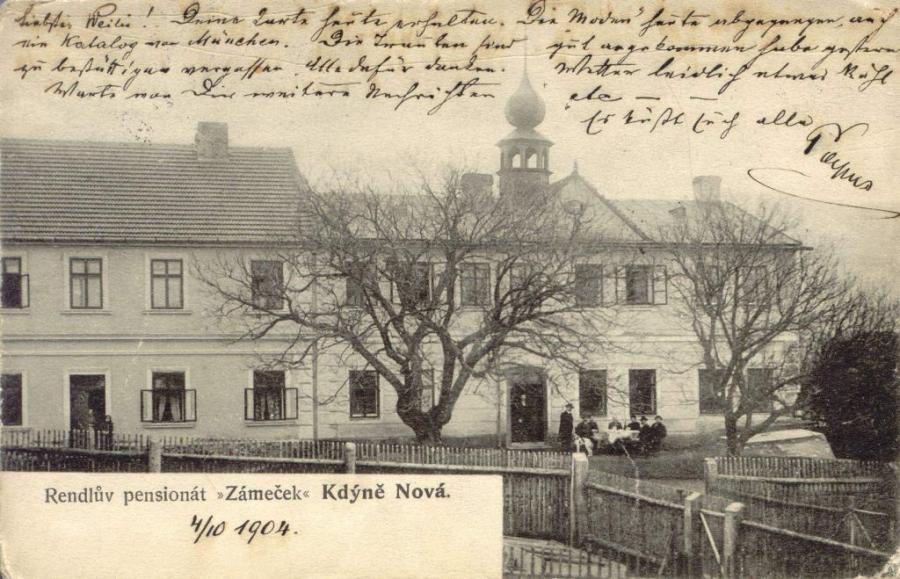 liebstes Weibi! Deine Karte heute erhalten. Die Moden heute abgegangen, auch
ein Katalog von München. Die Trauben sind gut angekommen habe gestern
zu bestätigen vergessen, Alle dafür danken. Wetter leidlich etwas kühl
Warte von Dir weitere Nachrichten etc — —
Es küßt Euch alle
Rendlův pensionát »Zámeček« Kdýně Nová.
4/10 1904.